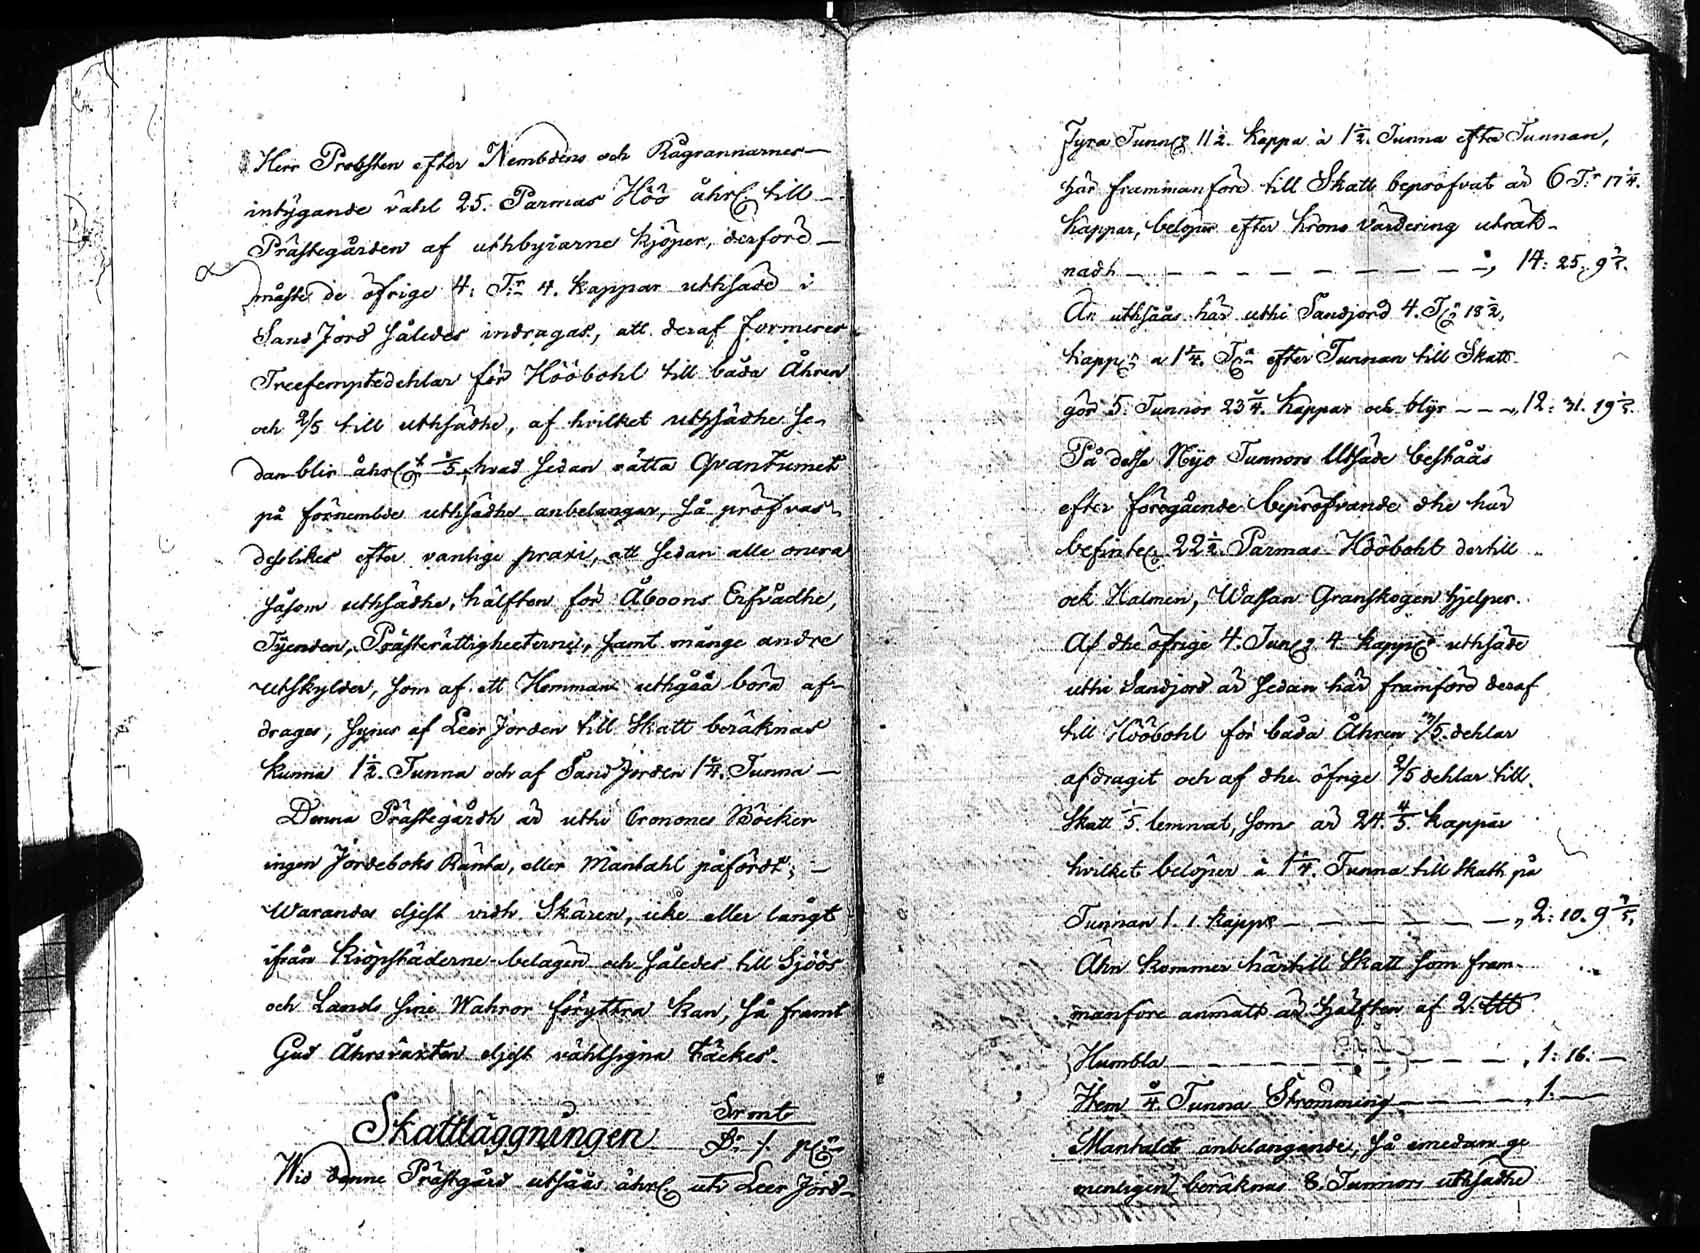 Herr Probsten efter Nembdens och Rågrannarnes
intygande vähl 25. Parmas Höö åhrl. till
Prästegården af uthbyiarne kjöper, derföre
måste de öfrige 4: T:r 4. kappar uthsäde i
Sand Jord således indragas, att deraf formeres
Treefemptedehlar för Hööbohl till båda Åhren
och 2/5 till uthsädhe, af hvilket uthsädhe se-
dan blir åhrl:t 1/5, hvad sedan rätta Qvantumet
på förnembde uthsädhe anbelangar, så pröfvas
desslikes efter vanlige praxi, att sedan alle onera
såsom uthsädhe, hälften för Åboens Erfvådhe,
Tijenden, Prästerättigheeterne, samt månge andre
utskylder, som af ett Hemman uthgåå böra af-
drages, synes af Leer Jorden till Skatt beräknas
kunna 1 1/2. Tunna och af Sand Jorden 1 1/4. Tunna
Denna Prästegårdh är uthi Cronones Böcker
ingen Jordeboks Ränta, eller Mantahl påfördt;
Warandes eljest vidh Skären, icke eller långt
ifrån kiöpstäderne belägen och således till Sjöös
och Lands sine Wahror föryttra kan, så framt
Gud Åhrsväxten eljest vählsigna täckes.
Skattläggningen Srmt
Wid denne Prästgård utsåås åhrl uti Leer Jord
Fyra Tunnr 11 1/2. kappa à 1 1/2. Tunna efter Tunnan,
här frammanföre till Skatt bepröfvat är 6 T:r 17 1/4.
kappar, belöper efter krons värdering uträk-
nadh 14: 25. 9 3/5.
Än uthsåås här uthi Sandjord 4. T:r 18 1/2,
kappr à 1 1/4. T:a efter Tunnan till Skatt
gör 5. Tunnor 23 1/4. kappar och blijr 12: 31. 19 1/5.
På desse Nijo Tunnors Utsäde beståås
efter föregående bepröfvande dhe här
befintel 22 1/2 Parmas Hööbohl dertill
ock Halmen, Wassan Granskogen hjelper.
Af dhe öfrige 4. Tunr 4. kappr uthsäde
uthi Sandjord är sedan här framföre deraf
till Hööbohl för båda Åhren 3/5. dehlar
afdragit och af dhe öfrige 2/5 dehlar till
Skatt 1/5. lemnat, som är 24. 4/5. kappar
hvilket belöper à 1 1/4. Tunna till skatt på
Tunnan 1. 1. kappe 2: 10. 9 3/5.
Ähn kommer härtill Skatt som fram-
manföre anmält är Hälften af 2.
Humbla 1: 16.
Item 1/4. Tunna Strömming 1.
Mantalet anbelangande, så emedan ge
menligen beräknas 8. Tunnors uthsädhe